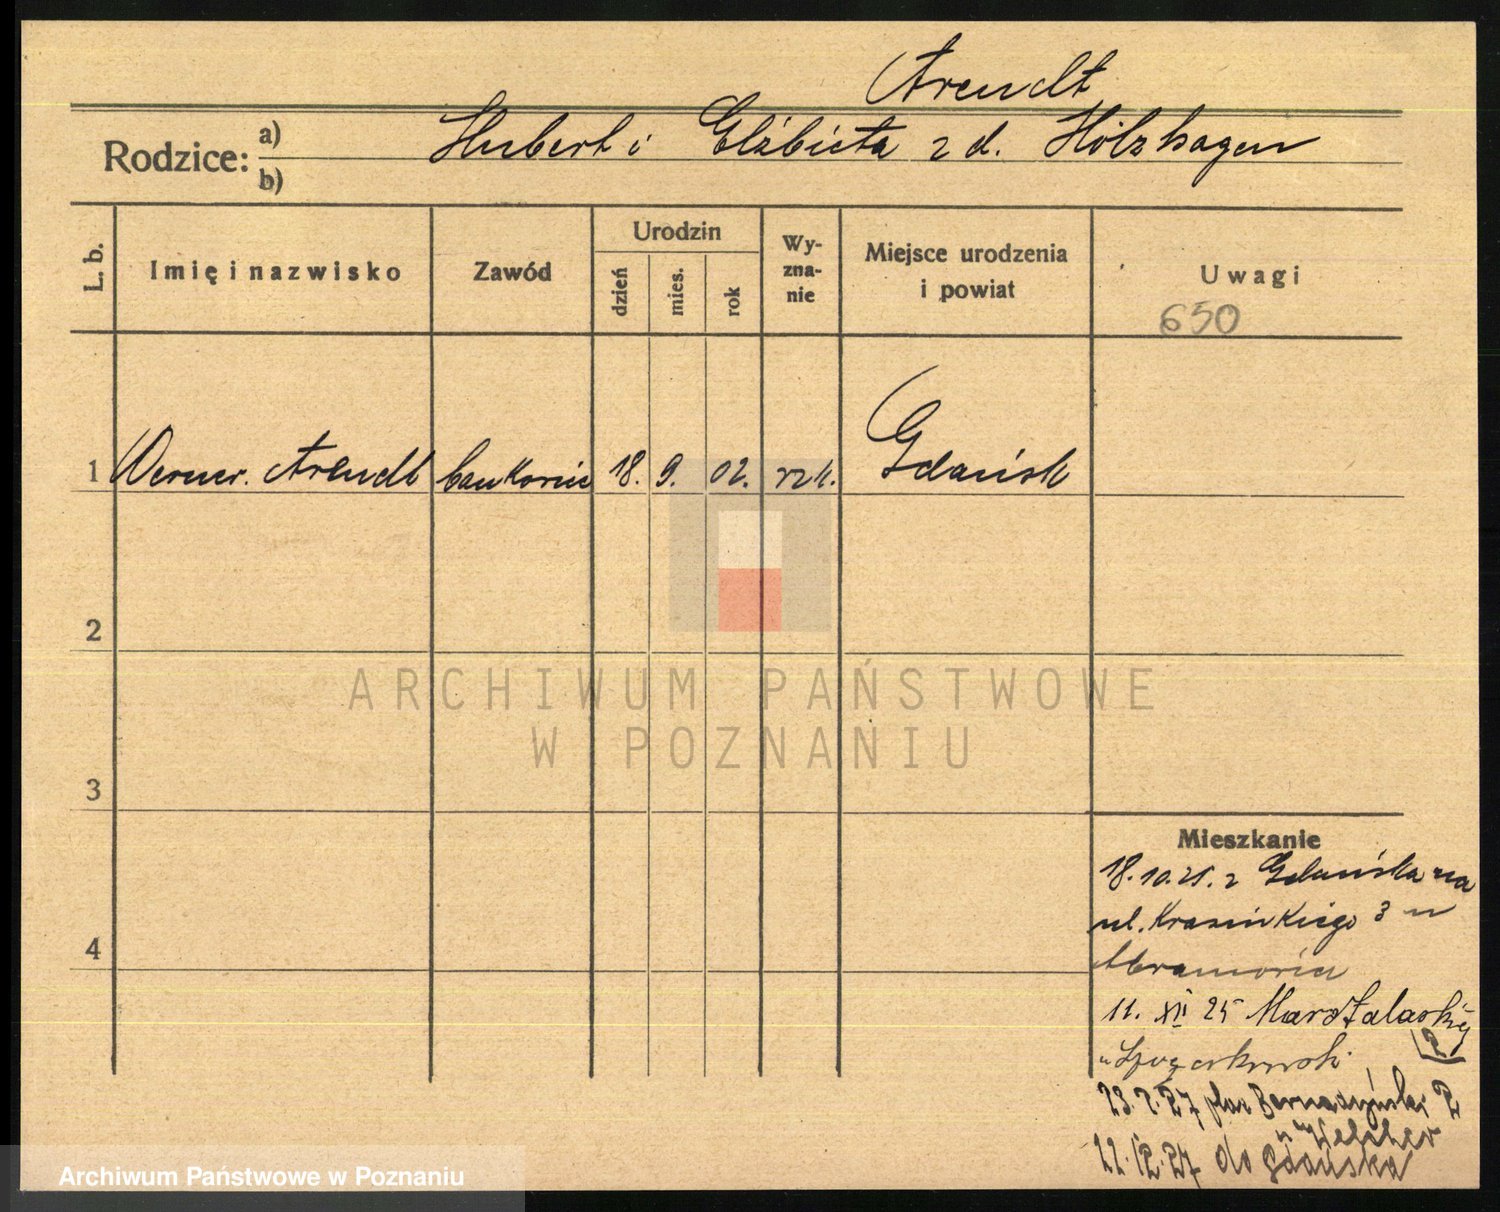 Arendt
Rodzice: a) b) Hubert i Elżbieta z d. Holzhagen
L. b. Imię i nazwisko Zawód Urodzin dzień mies. rok Wy-zna-nie Miejsce urodzenia i powiat Uwagi
650
1 Werner Arendt bankowiec 18. 9. 02. rzk. Gdańsk
2
ARCHIWUM PAŃSTWOWE
W POZNANIU
3
Mieszkanie
18.10.25. z Gdańska na
ul. Krasińskiego 3 u
4
11. XII 25 Marszalaskiej
2
23. 2. 27 plac Bernadyński 2
22. 12. 27 do Gdańska
Archiwum Państwowe w Poznaniu